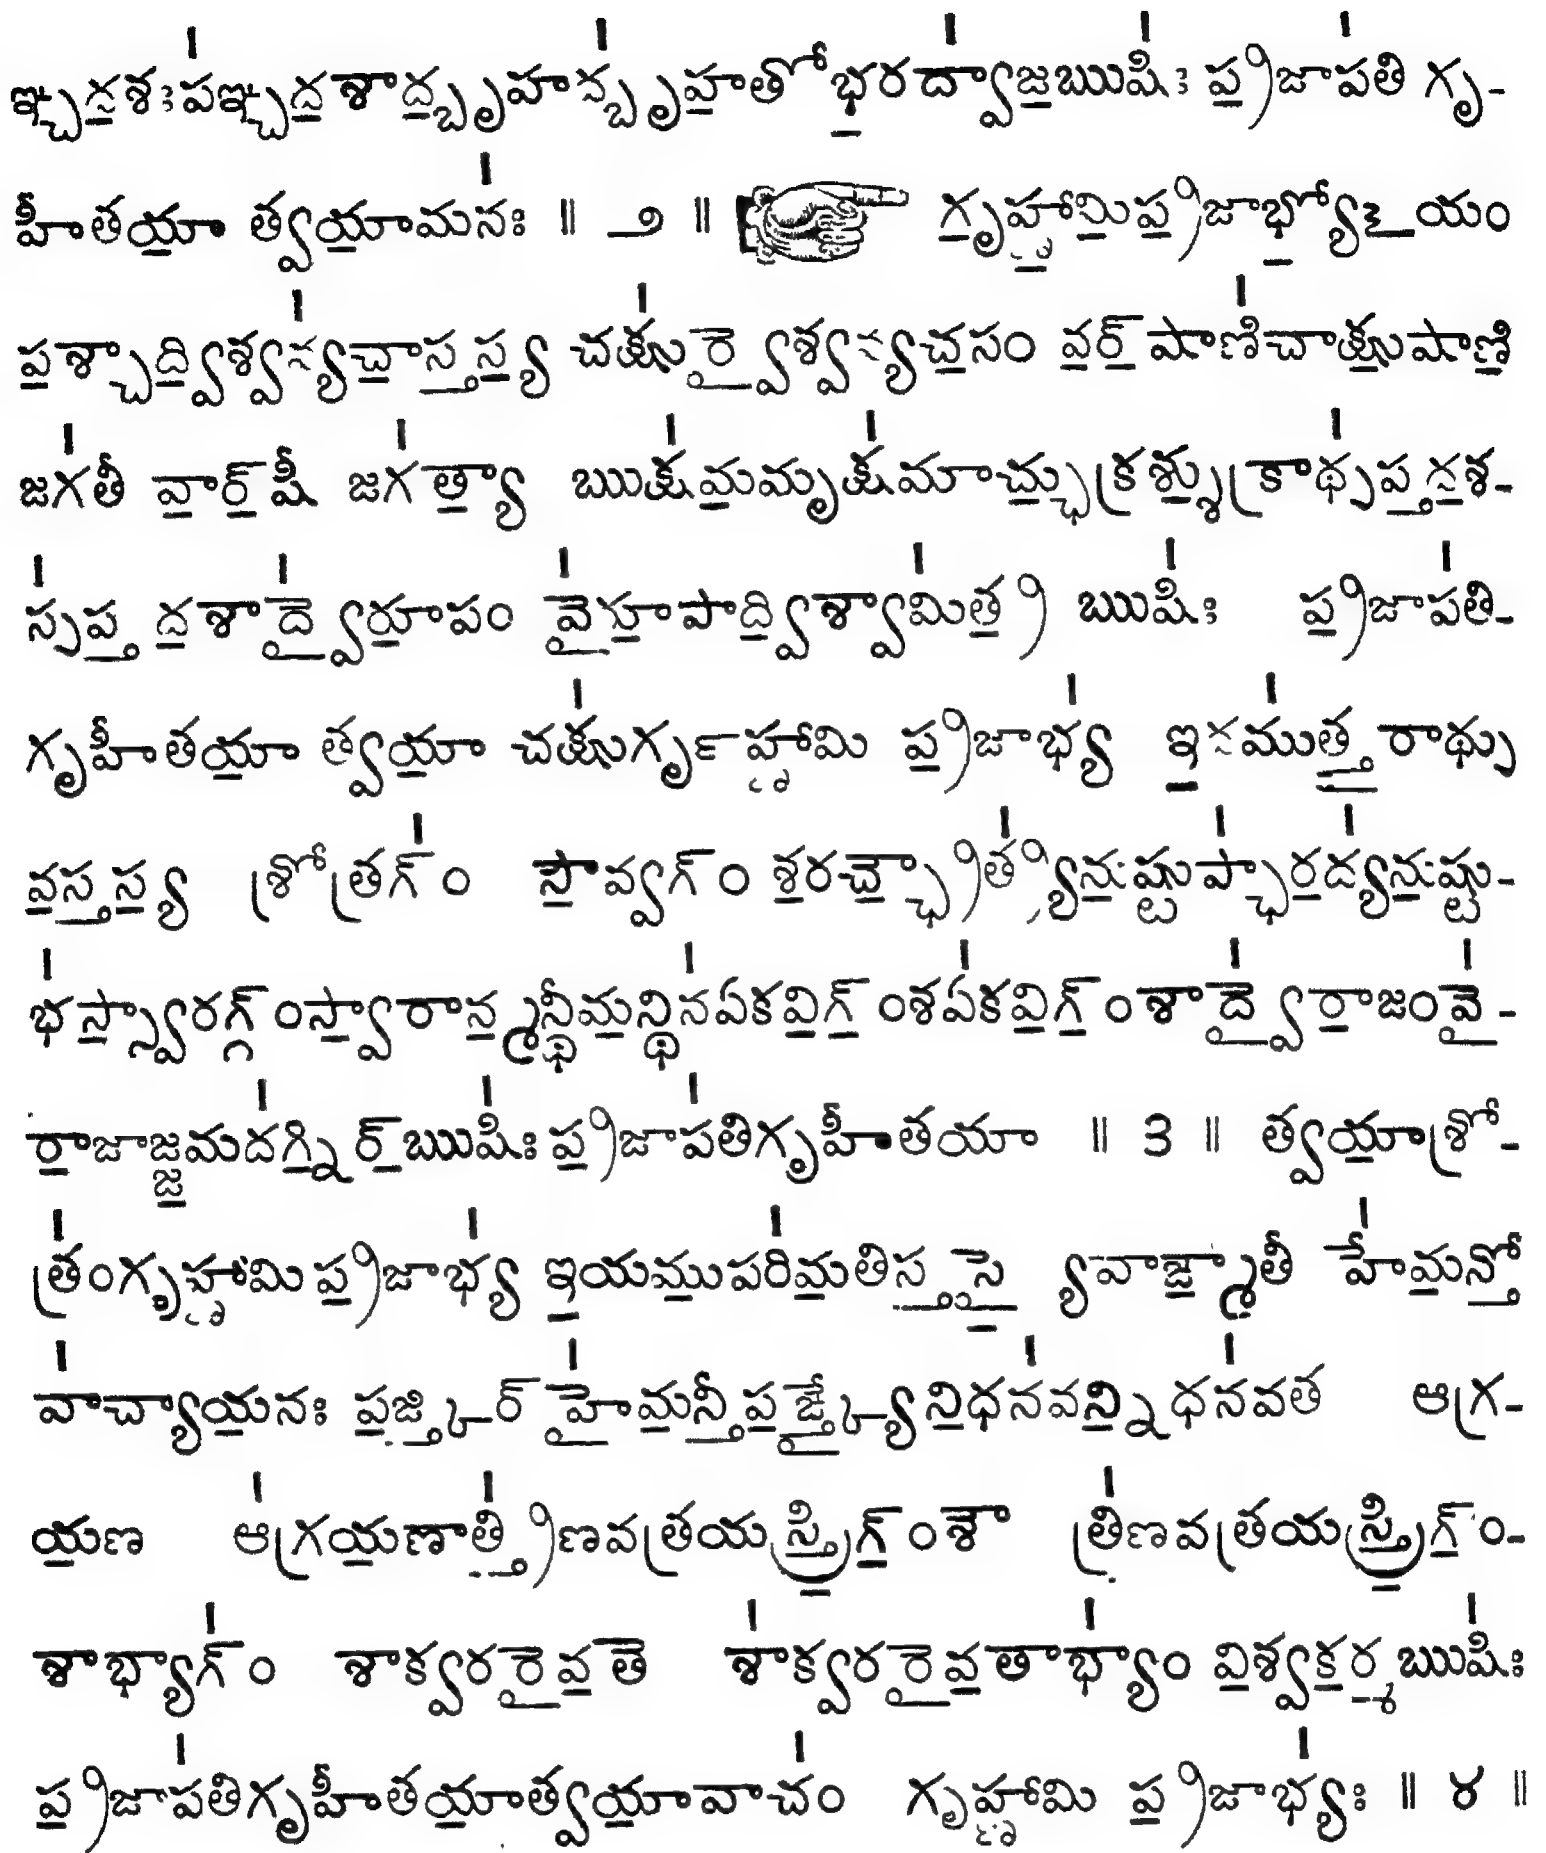 ఞ్చద॒శః ప॑ఞ్చద॒శాద్బృ॒హద్బృ॑హ॒తో భ॒రద్వా॑జ॒ఋషిః॑ ప్ర॒జాప॑తి గృ-
హీతయా॒ త్వయా॒మనః॑ ॥ ౨ ॥ గృ॒హ్ణా॒మి॒ప్ర॒జాభ్యో॒ఽ॒యం
ప॒శ్చాద్వి॒శ్వవ్య॑చా॒స్త॒స్య॒ చక్షు॑ర్వై॒శ్వవ్యచ॒సం వ॒ర్॒షాణి॑చాక్షు॒షాణి॒
జగ॑తీ వా॒ర్॒షీ జగ॑త్యా॒ ఋక్ష॑మ॒మృక్ష॑మాచ్ఛు॒క్రశ్శు॒క్రాథ్స॑ప్త॒ద॒శ-
స్స॑ప్త॒ద॒శాద్వై॑రూ॒పం వై॑రూ॒పాద్వి॒శ్వామి॑త్ర॒ ఋషిః॑ ప్ర॒జాప॑తి-
గృహీతయా॒ త్వయా॒ చక్షు॑ర్గృహ్ణామి ప్ర॒జాభ్య॑ ఇ॒దము॑త్త॒రాథ్సు
వ॒స్త॒స్య॒ శ్రోత్రగ్॑ం సౌ॒వ్వగ్ం శ॒రచ్ఛ్రౌ॒త్ర్య॑ను॒ష్టుప్ఛా॑ర॒ద్య॑ను॒ష్టు-
భ॑స్స్వా॒రగ్గ్ంస్వా॒రాన్మ॒న్థీమ॒న్థిన॑ఏకవి॒గ్॒ంశఏ॑కవి॒గ్॒ంశాద్వై॑రా॒జంవై॑-
రా॒జాజ్జ॒మద॑గ్ని॒ర్॒ఋషిః॑ ప్ర॒జాప॑తిగృహీతయా ॥ ౩ ॥ త్వయా॒శ్రో-
త్రం॑గృహ్ణామిప్ర॒జాభ్య॑ ఇ॒యము॒పరి॑మ॒తిస్త॒స్యై॒ వాఙ్మా॒తీ హే॑మ॒న్తో
వా॑చ్యాయ॒నః ప॒ఙ్క్తిర్ హై॑మ॒న్తీప॒ఙ్క్త్యై ని॒ధన॑వన్ని॒ధన॑వత ఆగ్ర-
య॒ణ ఆ॑గ్రయ॒ణాత్త్రి॑ణవత్రయస్త్రి॒గ్॒ంశౌ త్రి॑ణవత్రయస్త్రి॒గ్॒ం-
శాభ్యాగ్॑ం శాక్వరరై॒వ॒తే శా॑క్వరరై॒వ॒తాభ్యాం॑ వి॒శ్వక॒ర్మ॒ఋషిః॑
ప్ర॒జాప॑తిగృహీతయా॒త్వయా॒వాచం॑ గృహ్ణామి ప్ర॒జాభ్యః॑ ॥ ౪ ॥